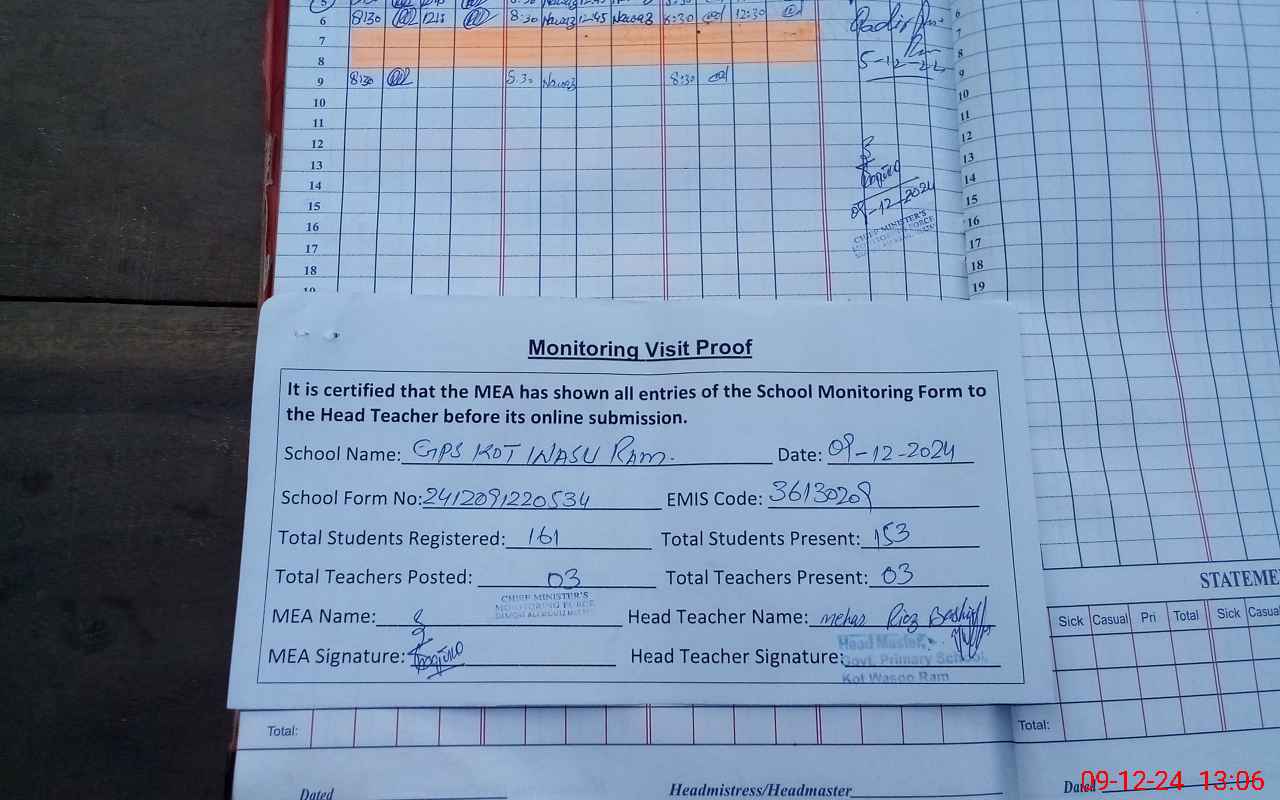 6 8:30 12:15 8:30 Nawaz 12:45 Nawaz 8:30 12:30
7
8
5-12-24
9 8:30 8:30 Nawaz 8:30
10
11
12
13
14
15
16
17
18
09-12-2024
CHIEF MINISTER'S
MONITORING FORCE
6
7
8
9
10
11
12
13
14
15
16
17
18
19
Monitoring Visit Proof
It is certified that the MEA has shown all entries of the School Monitoring Form to
the Head Teacher before its online submission.
School Name: GPS KOT WASU RAM. Date: 09-12-2024
School Form No: 2412091220534 EMIS Code: 36130209
Total Students Registered: 161 Total Students Present: 153
Total Teachers Posted: 03 Total Teachers Present: 03
CHIEF MINISTER'S
MONITORING FORCE
MEA Name: Head Teacher Name: mehar Riaz Bashir
MEA Signature: Head Teacher Signature:
Head Master
Govt. Primary School,
Kot Wasoo Ram
STATEME
Sick Casual Pri Total Sick Casual
Total: Total:
Dated Headmistress/Headmaster Dated
09-12-24 13:06